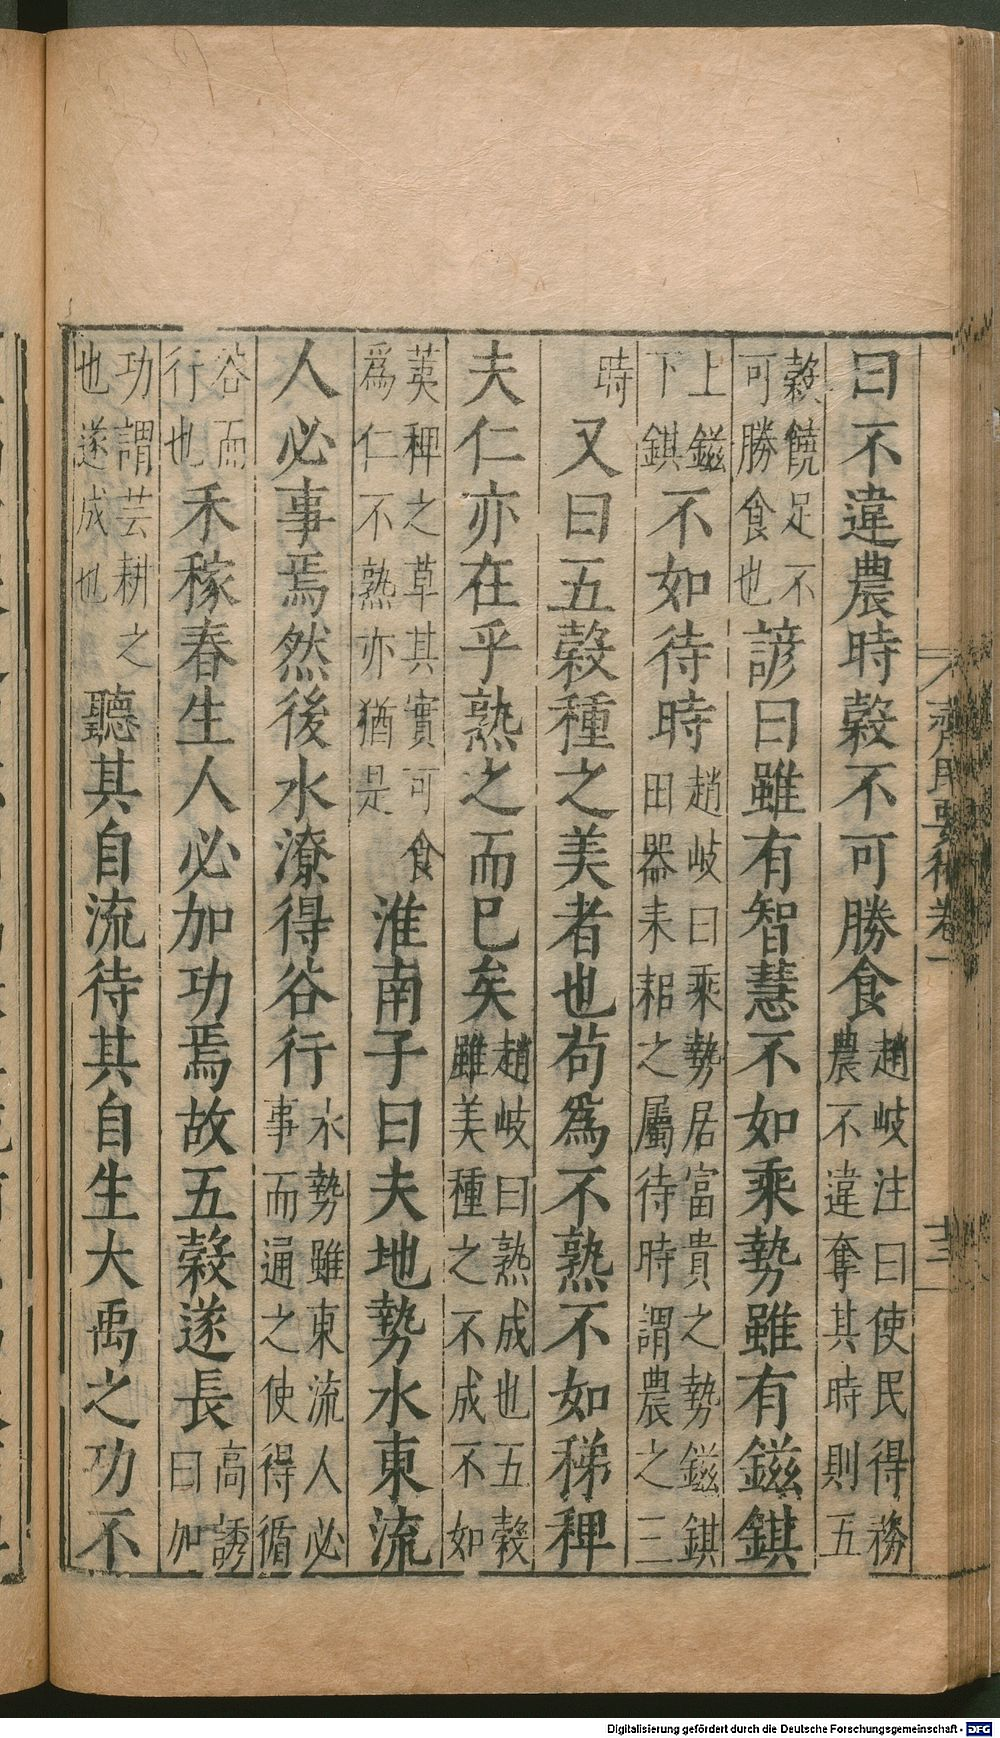 曰不違農時穀不可勝食趙岐注曰使民得務農不違奪其時則五
穀饒足不可勝食也諺曰雖有智慧不如乘勢雖有鎡錤
上鎡下錤不如待時趙岐曰乘勢居富貴之勢鎡錤田器耒耜之屬待時謂農之三
時又曰五穀種之美者也苟爲不熟不如稊稗
夫仁亦在乎熟之而已矣趙岐曰熟成也五穀雖美種之不成不如
荑稗之草其實可食爲仁不熟亦猶是淮南子曰夫地勢水東流
人必事焉然後水潦得谷行水勢雖東流人必事而通之使得循
谷而行也禾稼春生人必加功焉故五穀遂長高誘曰加
功謂芸耕之也遂成也聽其自流待其自生大禹之功不
齊民要術卷一
十三
Digitalisierung gefördert durch die Deutsche Forschungsgemeinschaft - DFG